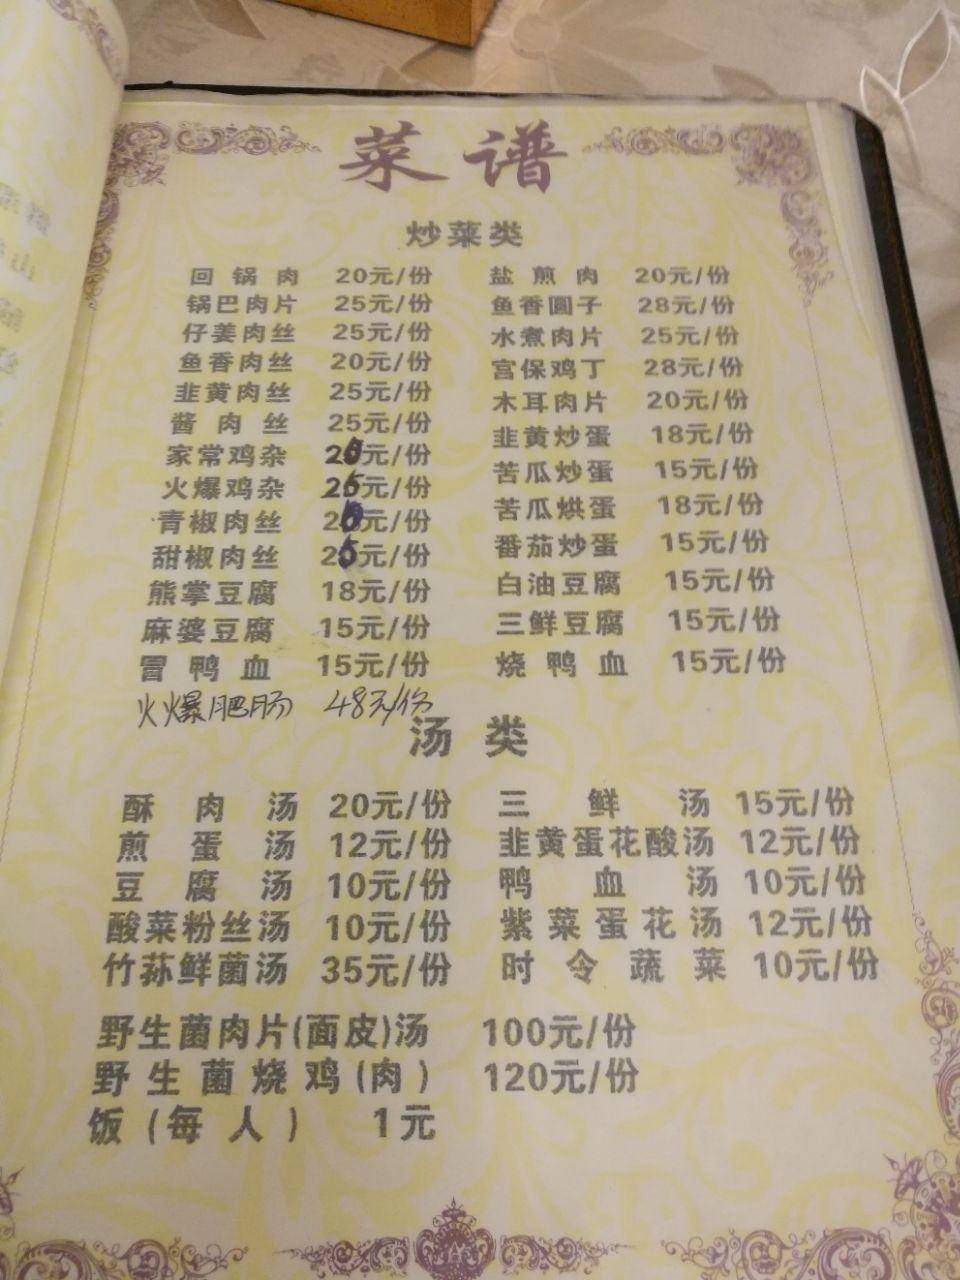 菜谱
炒菜类
回锅肉 20元/份 盐煎肉 20元/份
锅巴肉片 25元/份 鱼香圆子 28元/份
仔姜肉丝 25元/份 水煮肉片 25元/份
鱼香肉丝 20元/份 宫保鸡丁 28元/份
韭黄肉丝 25元/份 木耳肉片 20元/份
酱肉丝 25元/份 韭黄炒蛋 18元/份
家常鸡杂 元/份 苦瓜炒蛋 15元/份
火爆鸡杂 25元/份 苦瓜烘蛋 18元/份
青椒肉丝 元/份 番茄炒蛋 15元/份
甜椒肉丝 25元/份 白油豆腐 15元/份
熊掌豆腐 18元/份 三鲜豆腐 15元/份
麻婆豆腐 15元/份 烧鸭血 15元/份
冒鸭血 15元/份
火爆肥肠 48元/份
汤类
酥肉汤 20元/份 三鲜汤 15元/份
煎蛋汤 12元/份 韭黄蛋花酸汤 12元/份
豆腐汤 10元/份 鸭血汤 10元/份
酸菜粉丝汤 10元/份 紫菜蛋花汤 12元/份
竹荪鲜菌汤 35元/份 时令蔬菜 10元/份
野生菌肉片(面皮)汤 100元/份
野生菌烧鸡(肉) 120元/份
饭(每人) 1元